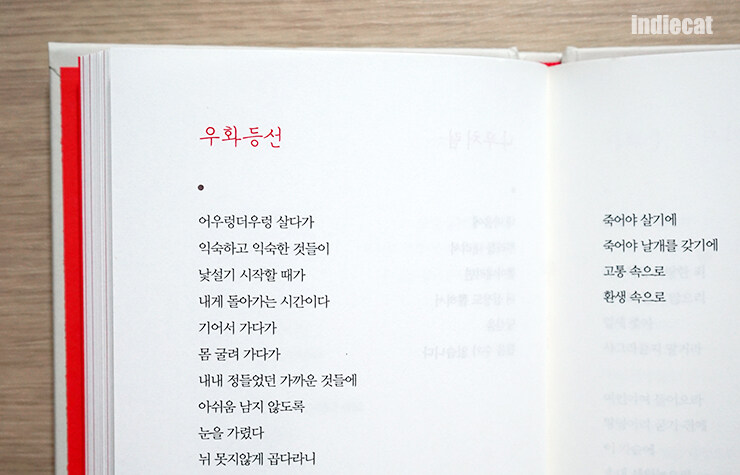 indiecat
우화등선
어우렁더우렁 살다가
익숙하고 익숙한 것들이
낯설기 시작할 때가
내게 돌아가는 시간이다
기어서 가다가
몸 굴려 가다가
내내 정들었던 가까운 것들에
아쉬움 남지 않도록
눈을 가렸다
뉘 못지않게 곱다라니
죽어야 살기에
죽어야 날개를 갖기에
고통 속으로
환생 속으로